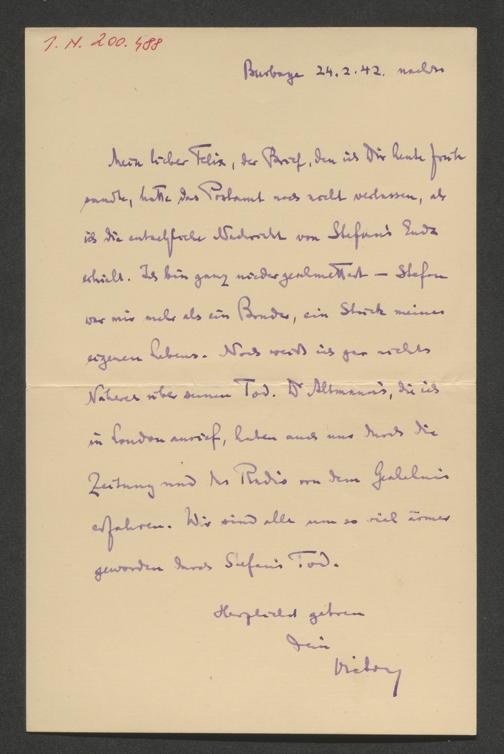 I. N. 200.488
Burbage 24.2.42. nachts
Mein lieber Felix, der Brief, den ich Dir heute früh
sandte, hatte das Postamt noch nicht verlassen, als
ich die entsetzliche Nachricht von Stefans Ende
erhielt. Ich bin ganz niedergeschmettert – Stefan
war mir mehr als ein Bruder, ein Stück meines
eigenen Lebens. Noch weiß ich gar nichts
Näheres über seinen Tod. Dr Altmann's, die ich
in London anrief, haben auch nur durch die
Zeitung und das Radio von dem Geschehnis
erfahren. Wir sind alle um so viel ärmer
geworden durch Stefans Tod.
Herzlichst getreu
Dein
Victor